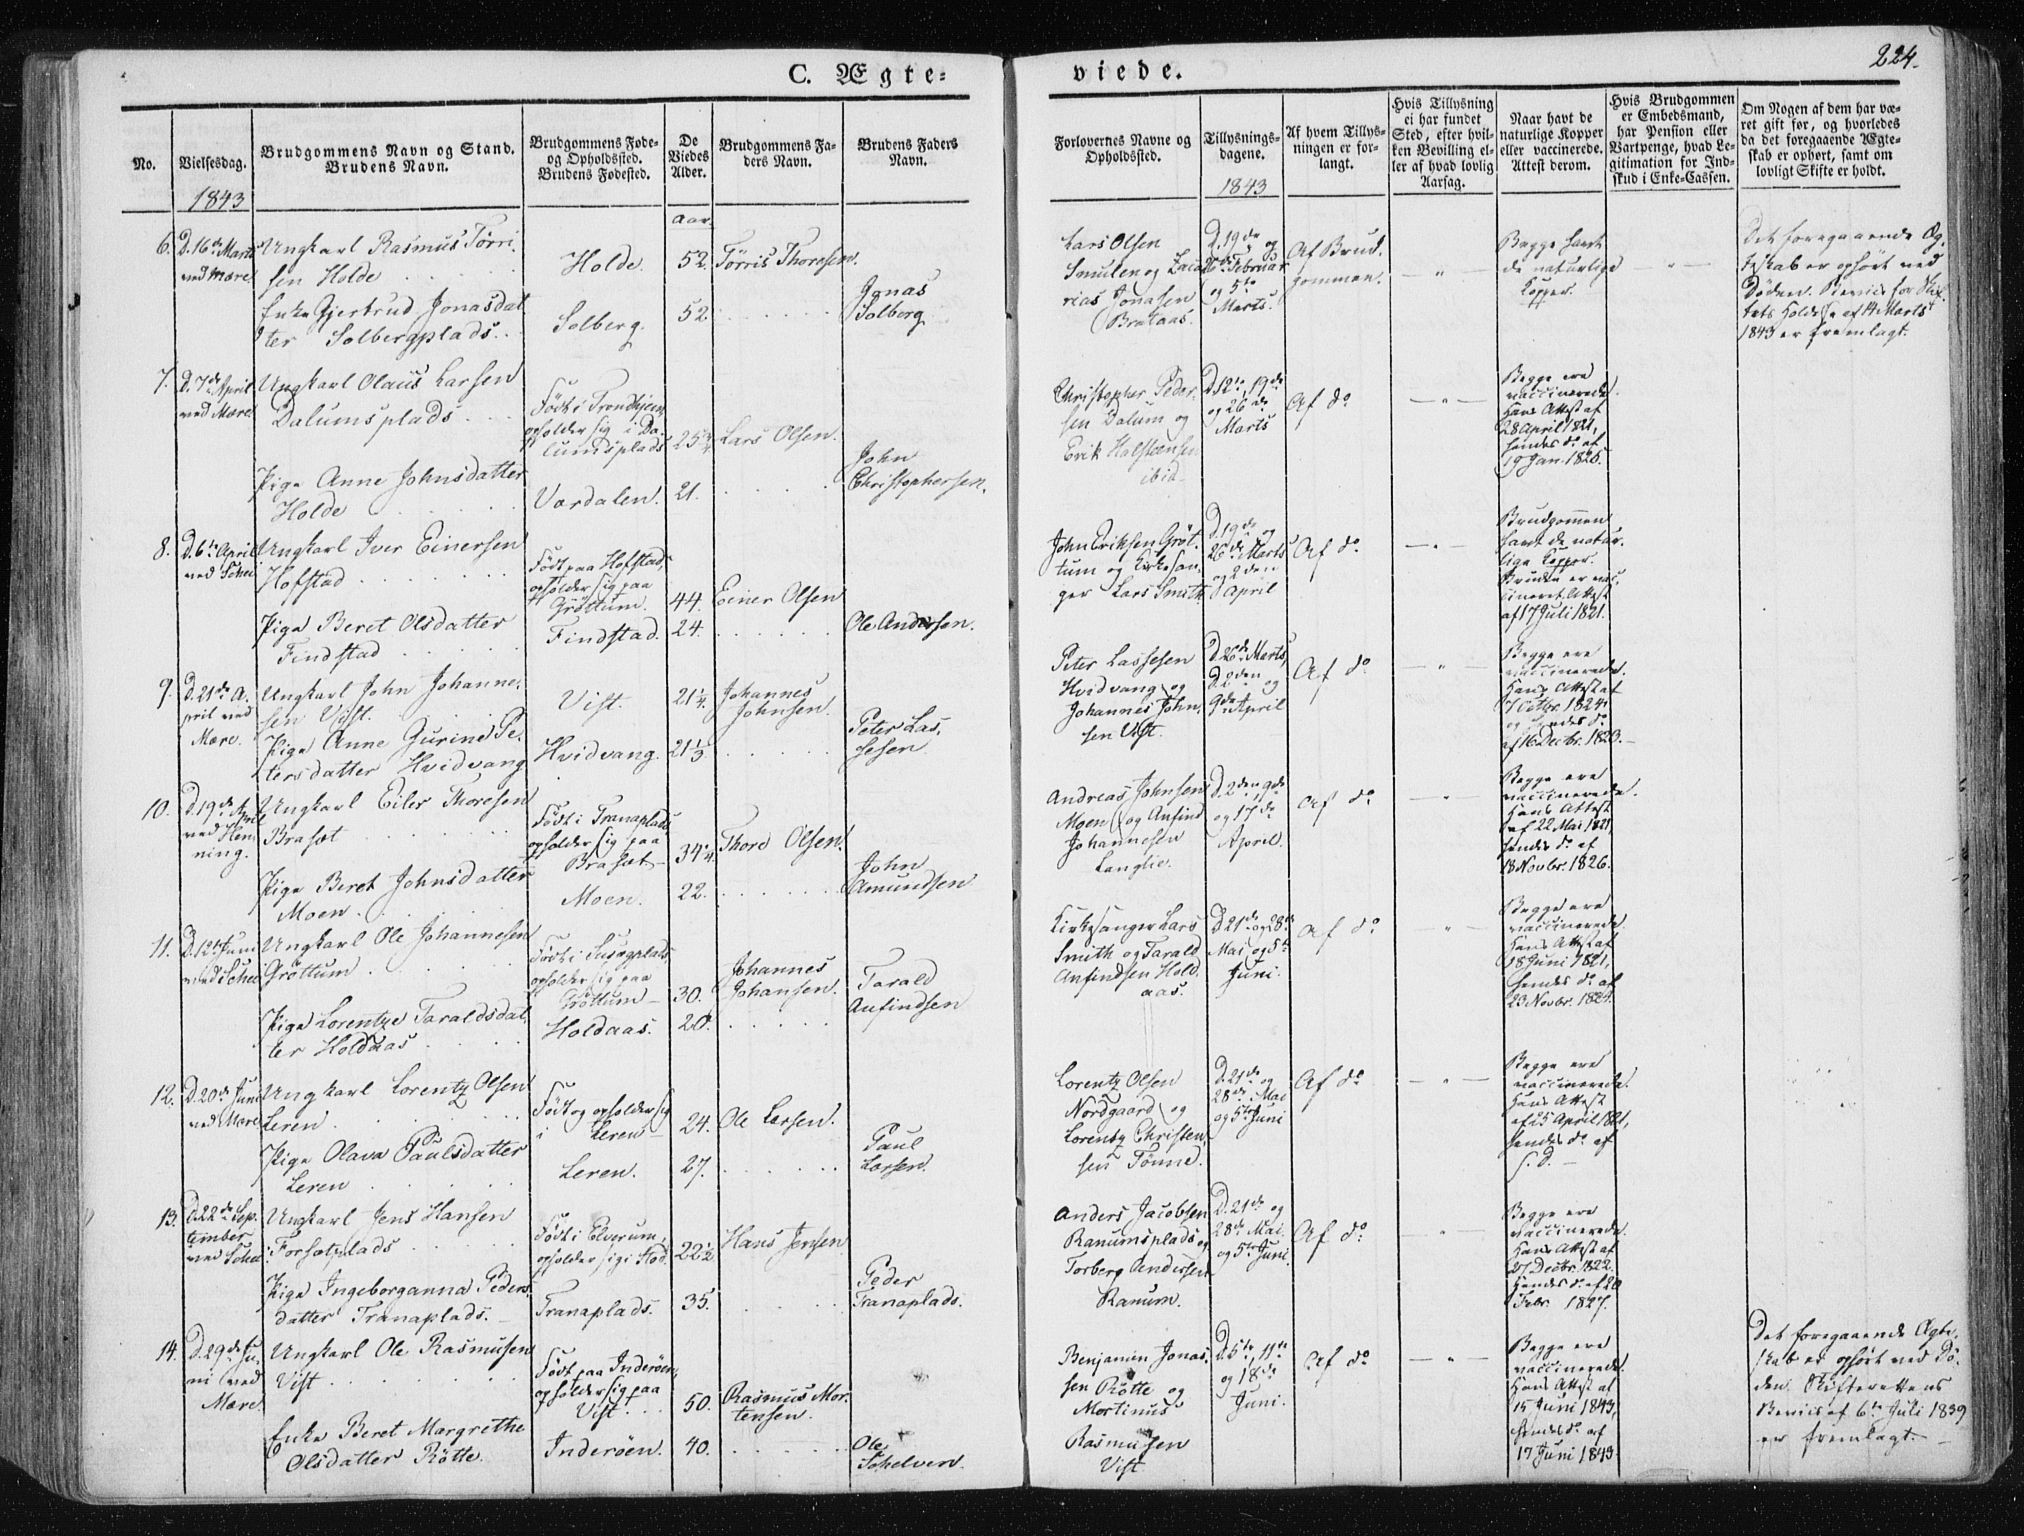 C. Ægte=
viede.
224.
No.
Vielsesdag.
Brudgommens Navn og Stand.
Brudens Navn.
Brudgommens Føde-
og Opholdssted.
Brudens Fødested.
De
Viedes
Alder.
Brudgommens Fa-
ders Navn.
Brudens Faders
Navn.
Forlovernes Navne og
Opholdssted.
Tillysnings-
dagene.
Af hvem Tillys-
ningen er for-
langt.
Hvis Tillysning
ei har fundet
Sted, efter hvil-
ken Bevilling el-
ler af hvad lovlig
Aarsag.
Naar havt de
naturlige Kopper
eller vaccinerede.
Attest derom.
Hvis Brudgommen
er Embedsmand,
har Pension eller
Vartpenge, hvad Le-
gitimation for Ind-
skud i Enke-Cassen.
Om Nogen af dem har væ-
ret gift før, og hvorledes
da det foregaaende Ægte-
skab er ophørt, samt om
lovligt Skifte er holdt.
1843
1843
Aar.
6.
D. 16de Marts
ved Mære.
Ungkarl Rasmus Tørri-
sen Holde
Enke Gjertrud Jonasdat-
ter Solbergplads.
Holde
Solberg.
52
52
Tørris Thoresen.
Jonas
Solberg
Lars Olsen
Smulen og Zaca-
rias Jonasen
Brataas.
D. 19de og
26de Februar
og 5te
Marts.
Af Brud-
gommen.
Begge havt
de naturlige
Kopper.
Det foregaaende Æg-
teskab er ophørt ved
Døden. Beviis for Skif-
tets Holdelse af 14 Marts
1843 er fremlagt.
7.
D. 7de April
ved Mære
Ungkarl Olaus Larsen
Dalumsplads
Pige Anne Johnsdatter
Holde
Født i Trondhjem,
opholder sig i Da-
lumsplads
Værdalen.
25 3/4
21.
Lars Olsen.
John
Christophersen.
Christopher Peder-
sen Dalum og
Erik Halstensen
ibid.
D. 12te, 19de
og 26de
Marts
Af do
Begge ere
vaccinerede.
Hans Attest af
28 April 1821,
hendes do af
19 Jan. 1825.
8.
D. 6te April
ved Schei
Ungkarl Iver Einersen
Hofstad
Pige Beret Olsdatter
Findstad
Født paa Hofstad,
opholder sig paa
Grøttum.
Findstad.
44.
24.
Einer Olsen
Ole Andersen.
John Eriksen Grøt-
tum og Kirkesan-
ger Lars Smith
D. 19de og
26de Marts
og 2den
April
Af do
Brudgommen
havt de natur-
lige Kopper.
Bruden er vac-
cineret. Attest
af 17 Juli 1821.
9.
D. 21de A-
pril ved
Mære.
Ungkarl John Johanne-
sen Vist.
Pige Anne Gurine Pe-
tersdatter Hvidvang
Vist.
Hvidvang.
21 1/4.
21 1/3
Johannes
Johnsen.
Peter Las-
sesen.
Peter Lassesen
Hvidvang og
Johannes John-
sen Vist.
D. 26de Marts,
D. 2den og
9de April
Af do
Begge ere
vaccinerede.
Hans Attest af
7 Octbr. 1824
og hendes do
af 16 Decbr. 1823.
10.
D. 19de April
ved Hen-
ning.
Ungkarl Eiler Thoresen
Brasæt
Pige Beret Johnsdatter
Moen.
Født i Tranaplads
opholder sig paa
Brasæt
Moen.
34 1/4
22.
Thore Olsen.
John
Amundsen
Andreas Johnsen
Moen og Anfind
Johannesen
Langlie.
D. 2den, 9de
og 17de
April.
Af do
Begge ere
vaccinerede.
Hans Attest
af 22 Mai 1821,
hendes do af
18 Novbr. 1826.
11.
D. 12te Juni
ved Schei
Ungkarl Ole Johannesen
Grøttum
Pige Lorentze Taraldsdat-
ter Holdaas
opholder sig paa
Grøttum
Holdaas.
30.
20.
Johannes
Johansen.
Tarald
Anfindsen
Kirkesanger Lars
Smith og Tarald
Anfindsen Hold-
aas.
D. 21de og 28de
Mai og 5te
Juni.
Af do
Begge ere
vaccinerede.
Hans Attest af
18 Juni 1821,
hendes do af
23 Novbr. 1824.
12.
D. 20de Juni
ved Mære
Ungkarl Lorentz Olsen
Leren
Pige Olava Paulsdatter
Leren
Født og opholder sig
i Leren
Leren.
24.
27.
Ole Larsen.
Paul
Larsen.
Lorentz Olsen
Nordgaard og
Lorentz Christen-
sen Tønne.
D. 21de og
28de Mai
og 5te Juni
Af do
Begge ere
vaccinerede.
Hans Attest
af 25 April 1821,
hendes do af
s. d.
13.
D. 22de Sep-
tember
ved Schei
Ungkarl Jens Hansen
Forsætplads
Pige Ingeborganna Peders-
datter Tranaplads.
Født i Elverum,
opholder sig i Stod.
Tranaplads.
22 1/2
35.
Hans Jensen
Peder
Tranaplads.
Anders Jacobsen
Ranumsplads og
Torberg Andersen
Ranum.
D. 21de og
28de Mai
og 5te Juni.
Af do
Begge ere
vaccinerede.
Hans Attest af
27 Decbr. 1822.
Hendes do af 20
Febr. 1827.
14.
D. 29de Ju-
ni ved
Mære.
Ungkarl Ole Rasmusen
Vist
Enke Beret Margrethe
Olsdatter Røtte.
Født paa Inderøen,
opholder sig paa
Vist.
Inderøen.
50.
40.
Rasmus Mor-
tensen.
Ole
Schelven.
Benjamin Jonas-
sen Røtte og
Mortinus
Rasmusen
Vist
D. 5te, 11te
og 18de
Juni.
Af do
Begge ere
vaccinerede.
Hans Attest af
15 Juni 1843,
hendes do af
17 Juni 1843
Det foregaaende Ægte-
skab er ophørt ved Dø-
den. Skifterettens
Beviis af 6te Juli 1839
er fremlagt.